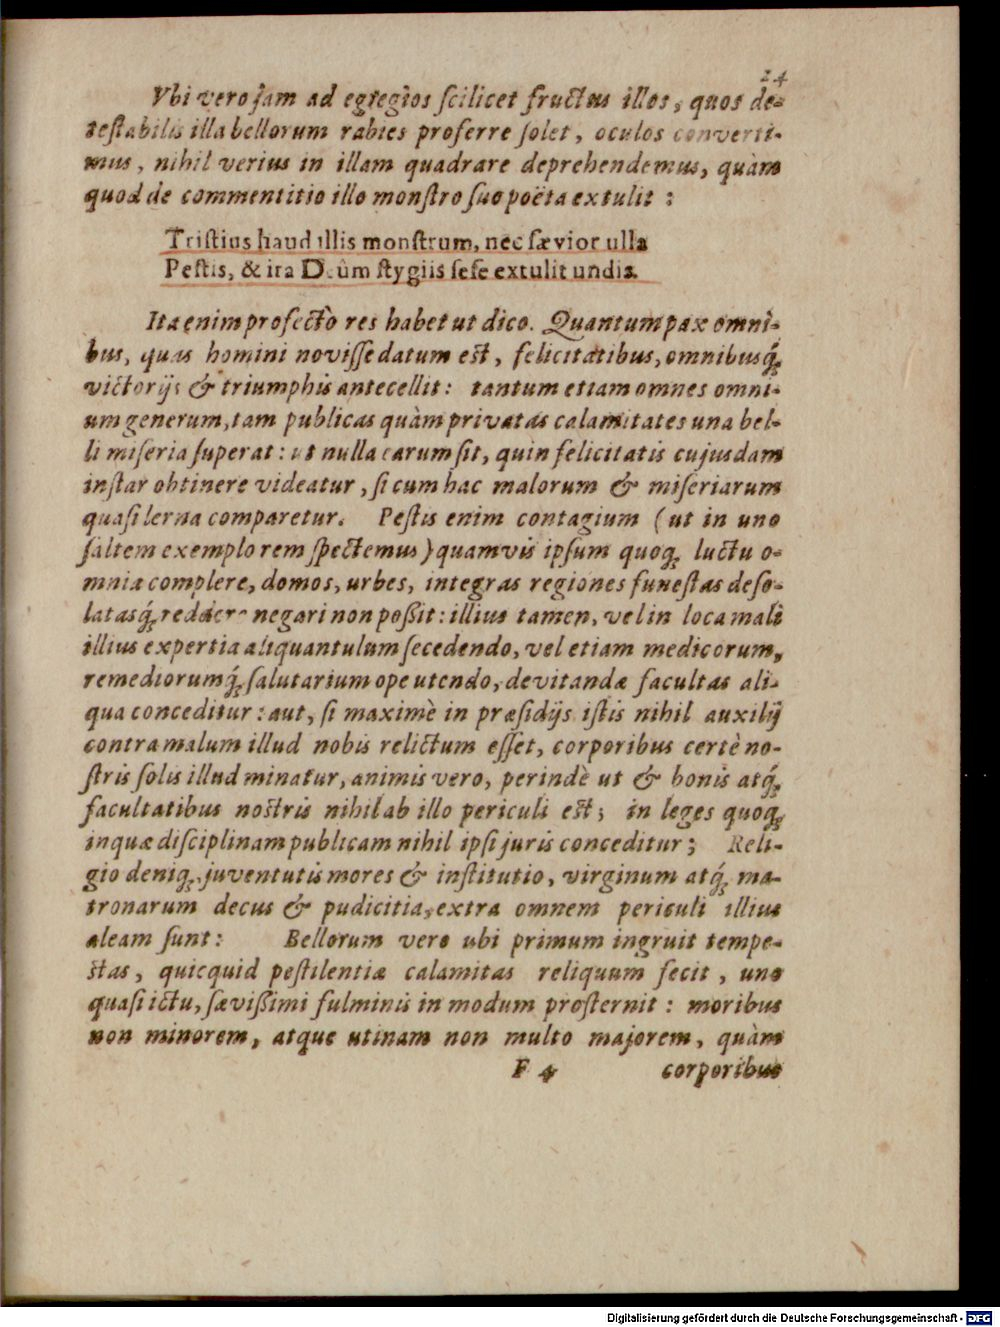 24
Vbi vero jam ad egregios ſcilicet fructus illos, quos de-
teſtabilis illa bellorum rabies proferre ſolet, oculos converti-
mus, nihil verius in illam quadrare deprehendemus, quàm
quod de commentitio illo monſtro ſuo poëta extulit:
Triſtius haud illis monſtrum, nec ſævior ulla
Peſtis, & ira Deûm ſtygiis ſeſe extulit undis.
Ita enim profectò res habet ut dico. Quantum pax omni-
bus, quas homini noviſſe datum eſt, felicitatibus, omnibusq́;
victorijs & triumphis antecellit: tantum etiam omnes omni-
um generum, tam publicas quàm privatas calamitates una bel-
li miſeria ſuperat: ut nulla earum ſit, quin felicitatis cujusdam
inſtar obtinere videatur, ſi cum hac malorum & miſeriarum
quaſi lerna comparetur. Peſtis enim contagium (ut in uno
ſaltem exemplo rem ſpectemus) quamvis ipſum quoq; luctu o-
mnia complere, domos, urbes, integras regiones funeſtas deſo-
latasq́; reddere negari non poßit: illius tamen, vel in loca mali
illius expertia aliquantulum ſecedendo, vel etiam medicorum,
remediorumq́; ſalutarium ope utendo, devitandæ facultas ali-
qua conceditur: aut, ſi maximè in præſidijs iſtis nihil auxilij
contra malum illud nobis relictum eſſet, corporibus certè no-
ſtris ſolis illud minatur, animis vero, perindè ut & bonis atq́;
facultatibus noſtris nihil ab illo periculi eſt; in leges quoq;
inquæ diſciplinam publicam nihil ipſi juris conceditur; Reli-
gio deniq;, juventutis mores & inſtitutio, virginum atq́; ma-
tronarum decus & pudicitia, extra omnem periculi illius
aleam ſunt: Bellorum vero ubi primum ingruit tempe-
ſtas, quicquid peſtilentiæ calamitas reliquum fecit, uno
quaſi ictu, ſævißimi fulminis in modum proſternit: moribus
non minorem, atque utinam non multo majorem, quàm
F 4 corporibus
Digitalisierung gefördert durch die Deutsche Forschungsgemeinschaft - DFG